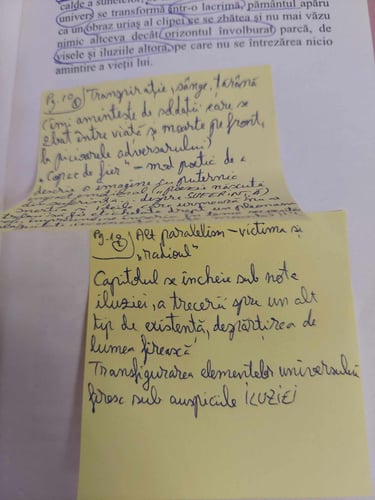 calde a sufletelor,
univers se transformă într-o lacrimă, pământul apăru
ca un obraz uriaș al clipei ce se zbătea și nu mai văzu
nimic altceva decât orizontul învolburat parcă, de
visele și iluziile altora, pe care nu se întrezărea nicio
amintire a vieții lui.
Pg. 10 ① Transpirație, sânge, țărână
(îmi amintește de soldații care se
zbat între viață și moarte pe front,
la picioarele adversarului)
„Copac de fier" – mod poetic de a
descrie o imagine puternic
SUFERINȚĂ)
Pg. 10 ② Alt paralelism – victima și
„ranioul"
Capitolul se încheie sub nota
iluziei, a trecerii spre un alt
tip de existență, despărțirea de
lumea firească
Transfigurarea elementelor universului
firesc sub auspiciile ILUZIEI